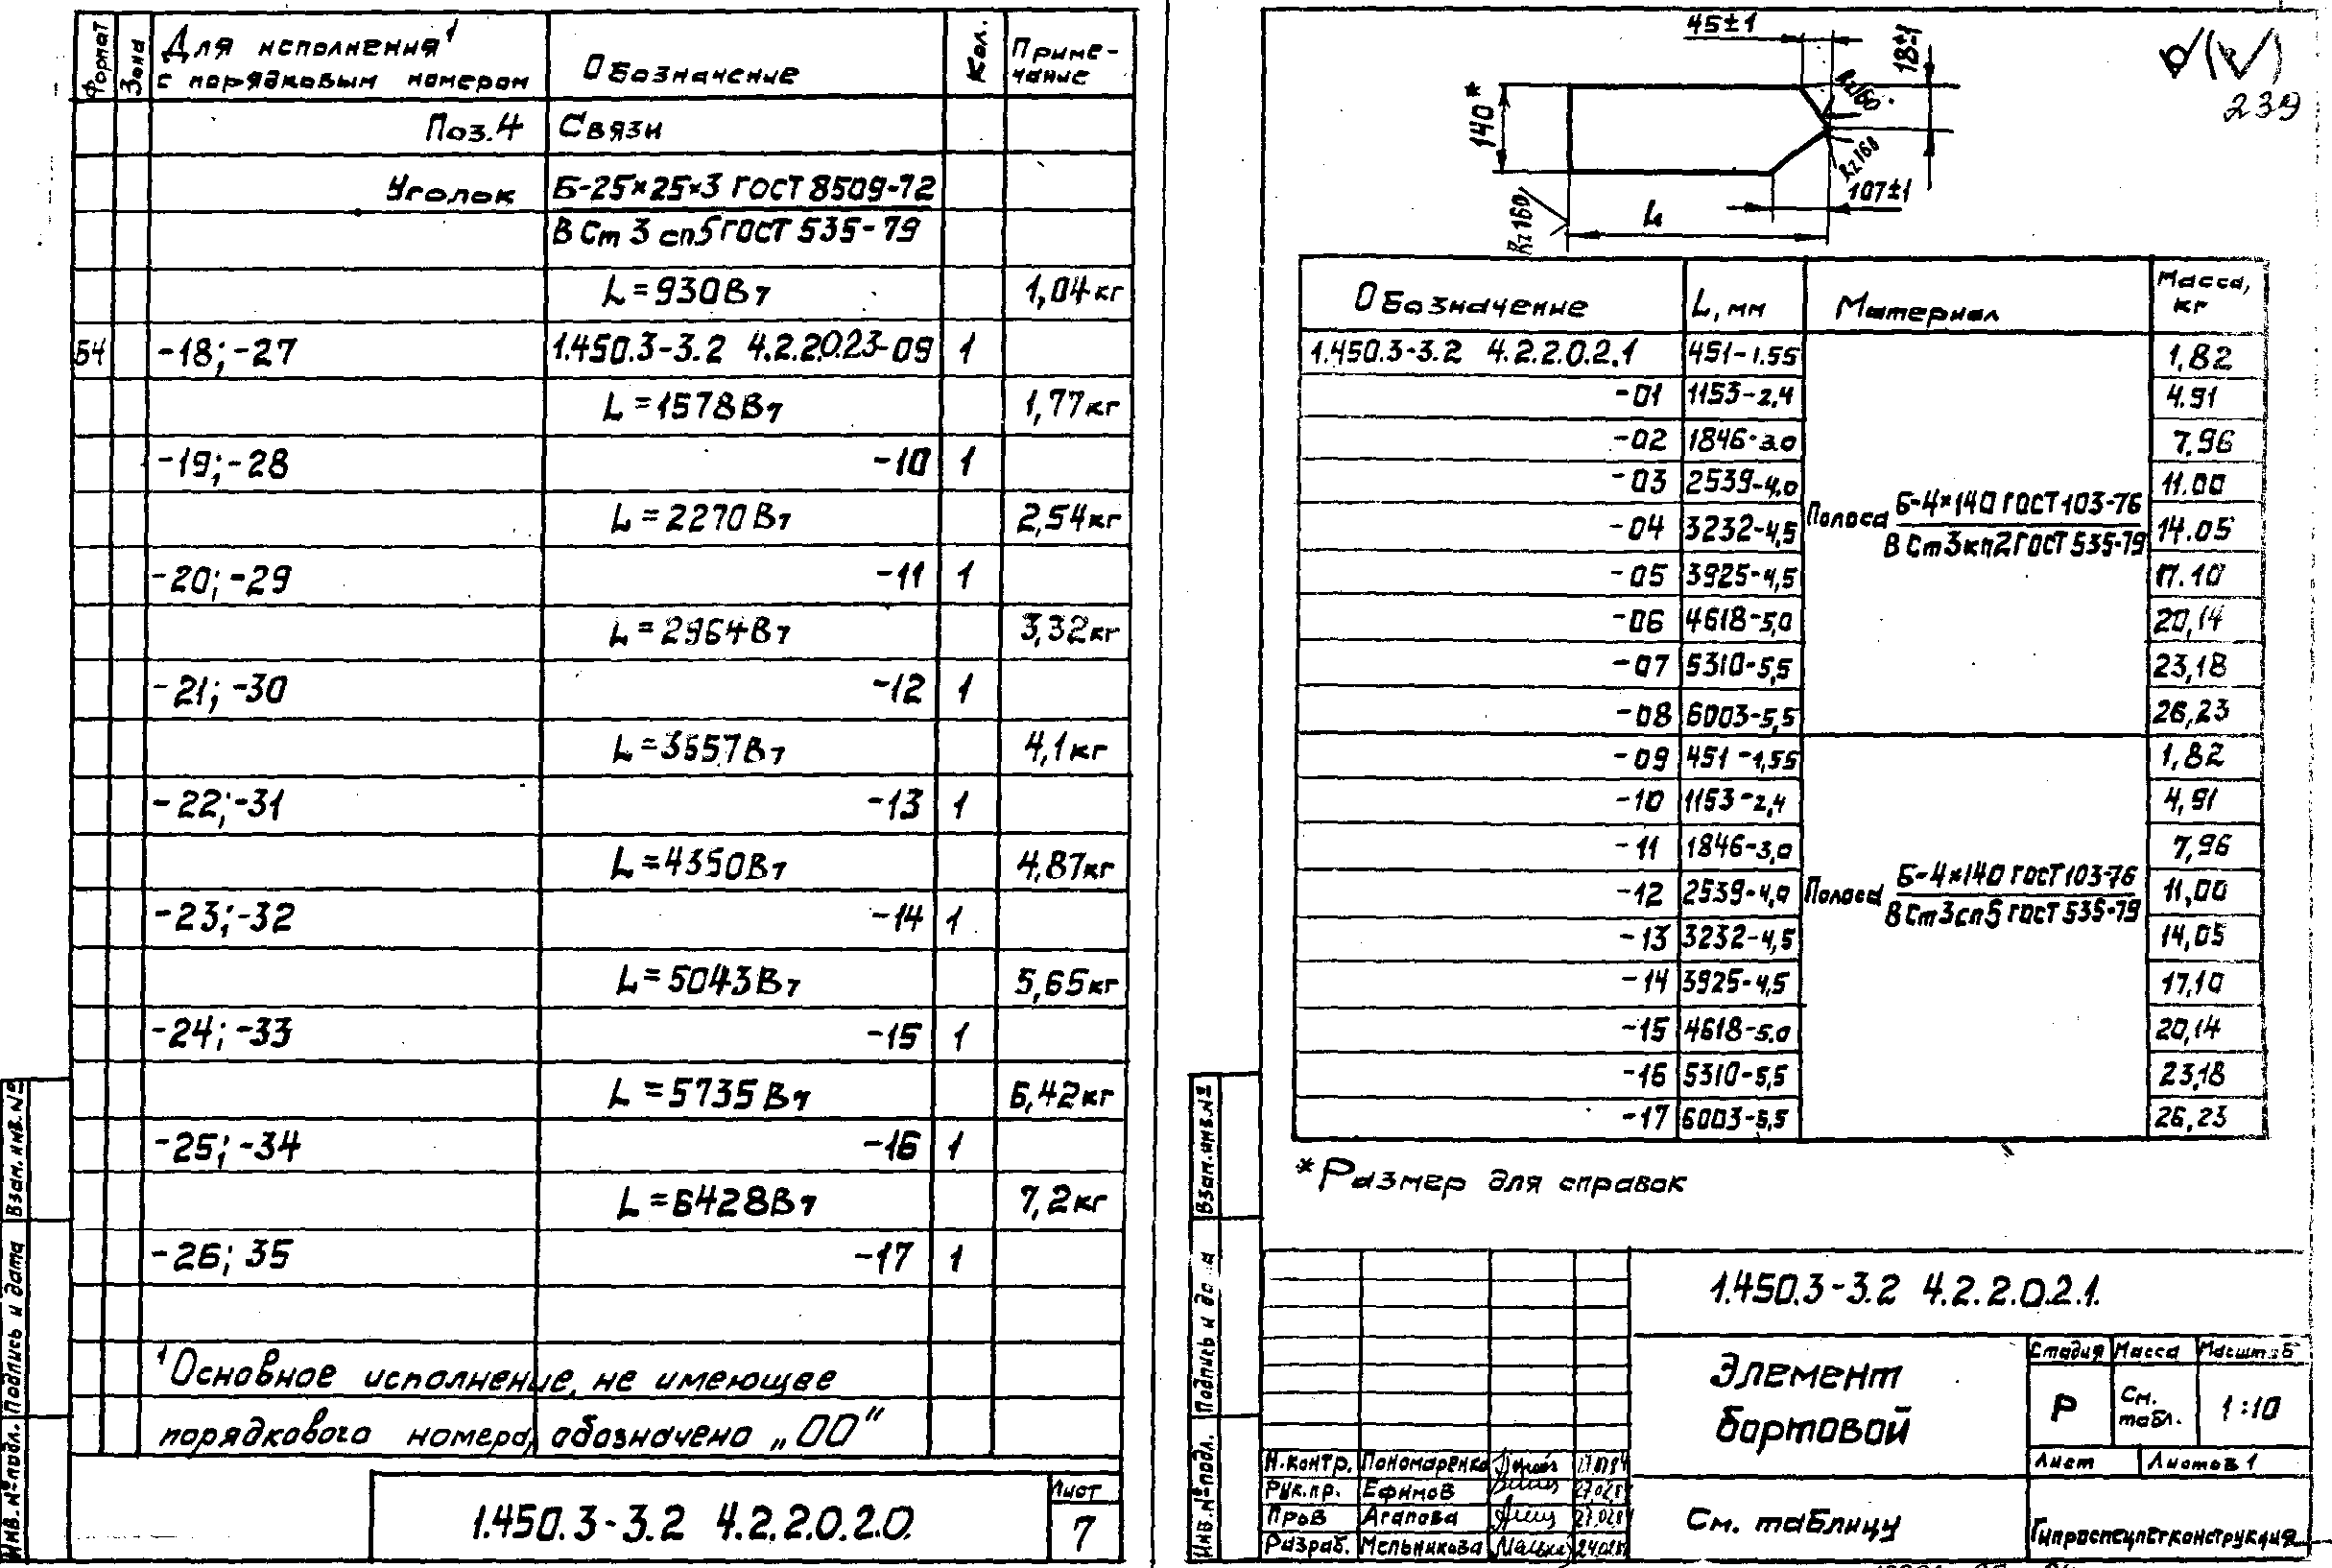 Формат
Зона
Для исполнения¹
с порядковым номером
Обозначение
Кол.
Приме-
чание
Поз.4 Связи
Уголок Б-25×25×3 ГОСТ 8509-72
ВСт3сп5 ГОСТ 535-79
L=930В7 1,04кг
Б4 -18; -27 1.450.3-3.2 4.2.2.0.2.3-09 1
L=1578В7 1,77кг
-19; -28 -10 1
L=2270В7 2,54кг
-20; -29 -11 1
L=2964В7 3,32кг
-21; -30 -12 1
L=3657В7 4,1кг
-22; -31 -13 1
L=4350В7 4,87кг
-23; -32 -14 1
L=5043В7 5,65кг
-24; -33 -15 1
L=5735В7 6,42кг
-25; -34 -16 1
L=6428В7 7,2кг
-26; 35 -17 1
¹Основное исполнение, не имеющее
порядкового номера, обозначено „00“
1.450.3-3.2 4.2.2.0.2.0.
Лист
7
Взам.инв.№
Подпись и дата
Инв.№ подл.
45±1
18±1
140*
Rz160
Rz160
Rz160
107±1
L
239
Обозначение L, мм Материал Масса,
кг
1.450.3-3.2 4.2.2.0.2.1 451-1.55 1,82
-01 1153-2,4 4.91
-02 1846-3.0 7,96
-03 2539-4,0 11.00
Полоса Б-4×140 ГОСТ 103-76
-04 3232-4,5 14.05
ВСт3кп2 ГОСТ 535-79
-05 3925-4,5 17.10
-06 4618-5,0 20,14
-07 5310-5,5 23,18
-08 6003-5,5 26,23
-09 451-1,55 1,82
-10 1153-2,4 4,91
-11 1846-3,0 7,96
Полоса Б-4×140 ГОСТ 103-76
-12 2539-4,0 11,00
ВСт3сп5 ГОСТ 535-79
-13 3232-4,5 14,05
-14 3925-4,5 17,10
-15 4618-5.0 20,14
-16 5310-5,5 23,18
-17 6003-5,5 26,23
*Размер для справок
Взам.инв.№
Подпись и да а
Инв.№ подл.
1.450.3-3.2 4.2.2.0.2.1.
Элемент
бортовой
Стадия Масса Масштаб
Р См.
табл. 1:10
Лист Листов 1
Н.контр. Пономаренко
Рук.пр. Ефимов
Пров Агапова
Разраб. Мельникова
См. таблицу
Гипроспецлегконструкция